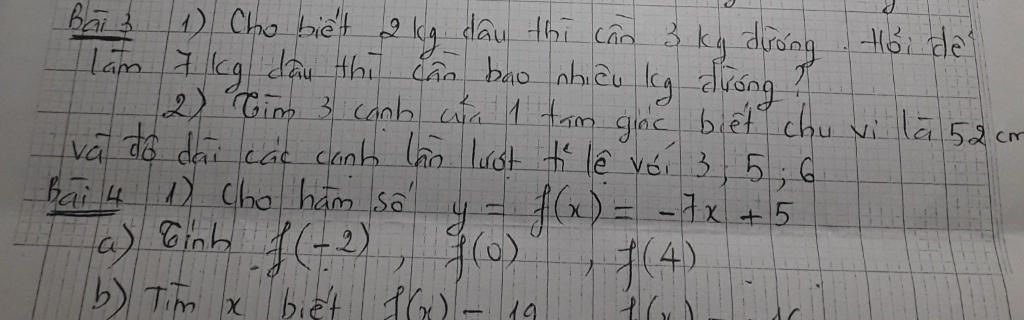 Bài 3 1) Cho biết 2 kg dâu thì cần 3 kg đường. Hỏi để
làm 7 kg dâu thì cần bao nhiêu kg đường?
2) Tìm 3 cạnh của 1 tam giác biết chu vi là 52 cm
và độ dài các cạnh lần lượt tỉ lệ với 3; 5; 6
Bài 4 1) Cho hàm số y = f(x) = -7x + 5
a) Tính f(-2), f(0), f(4)
b) Tìm x biết f(x) = 19